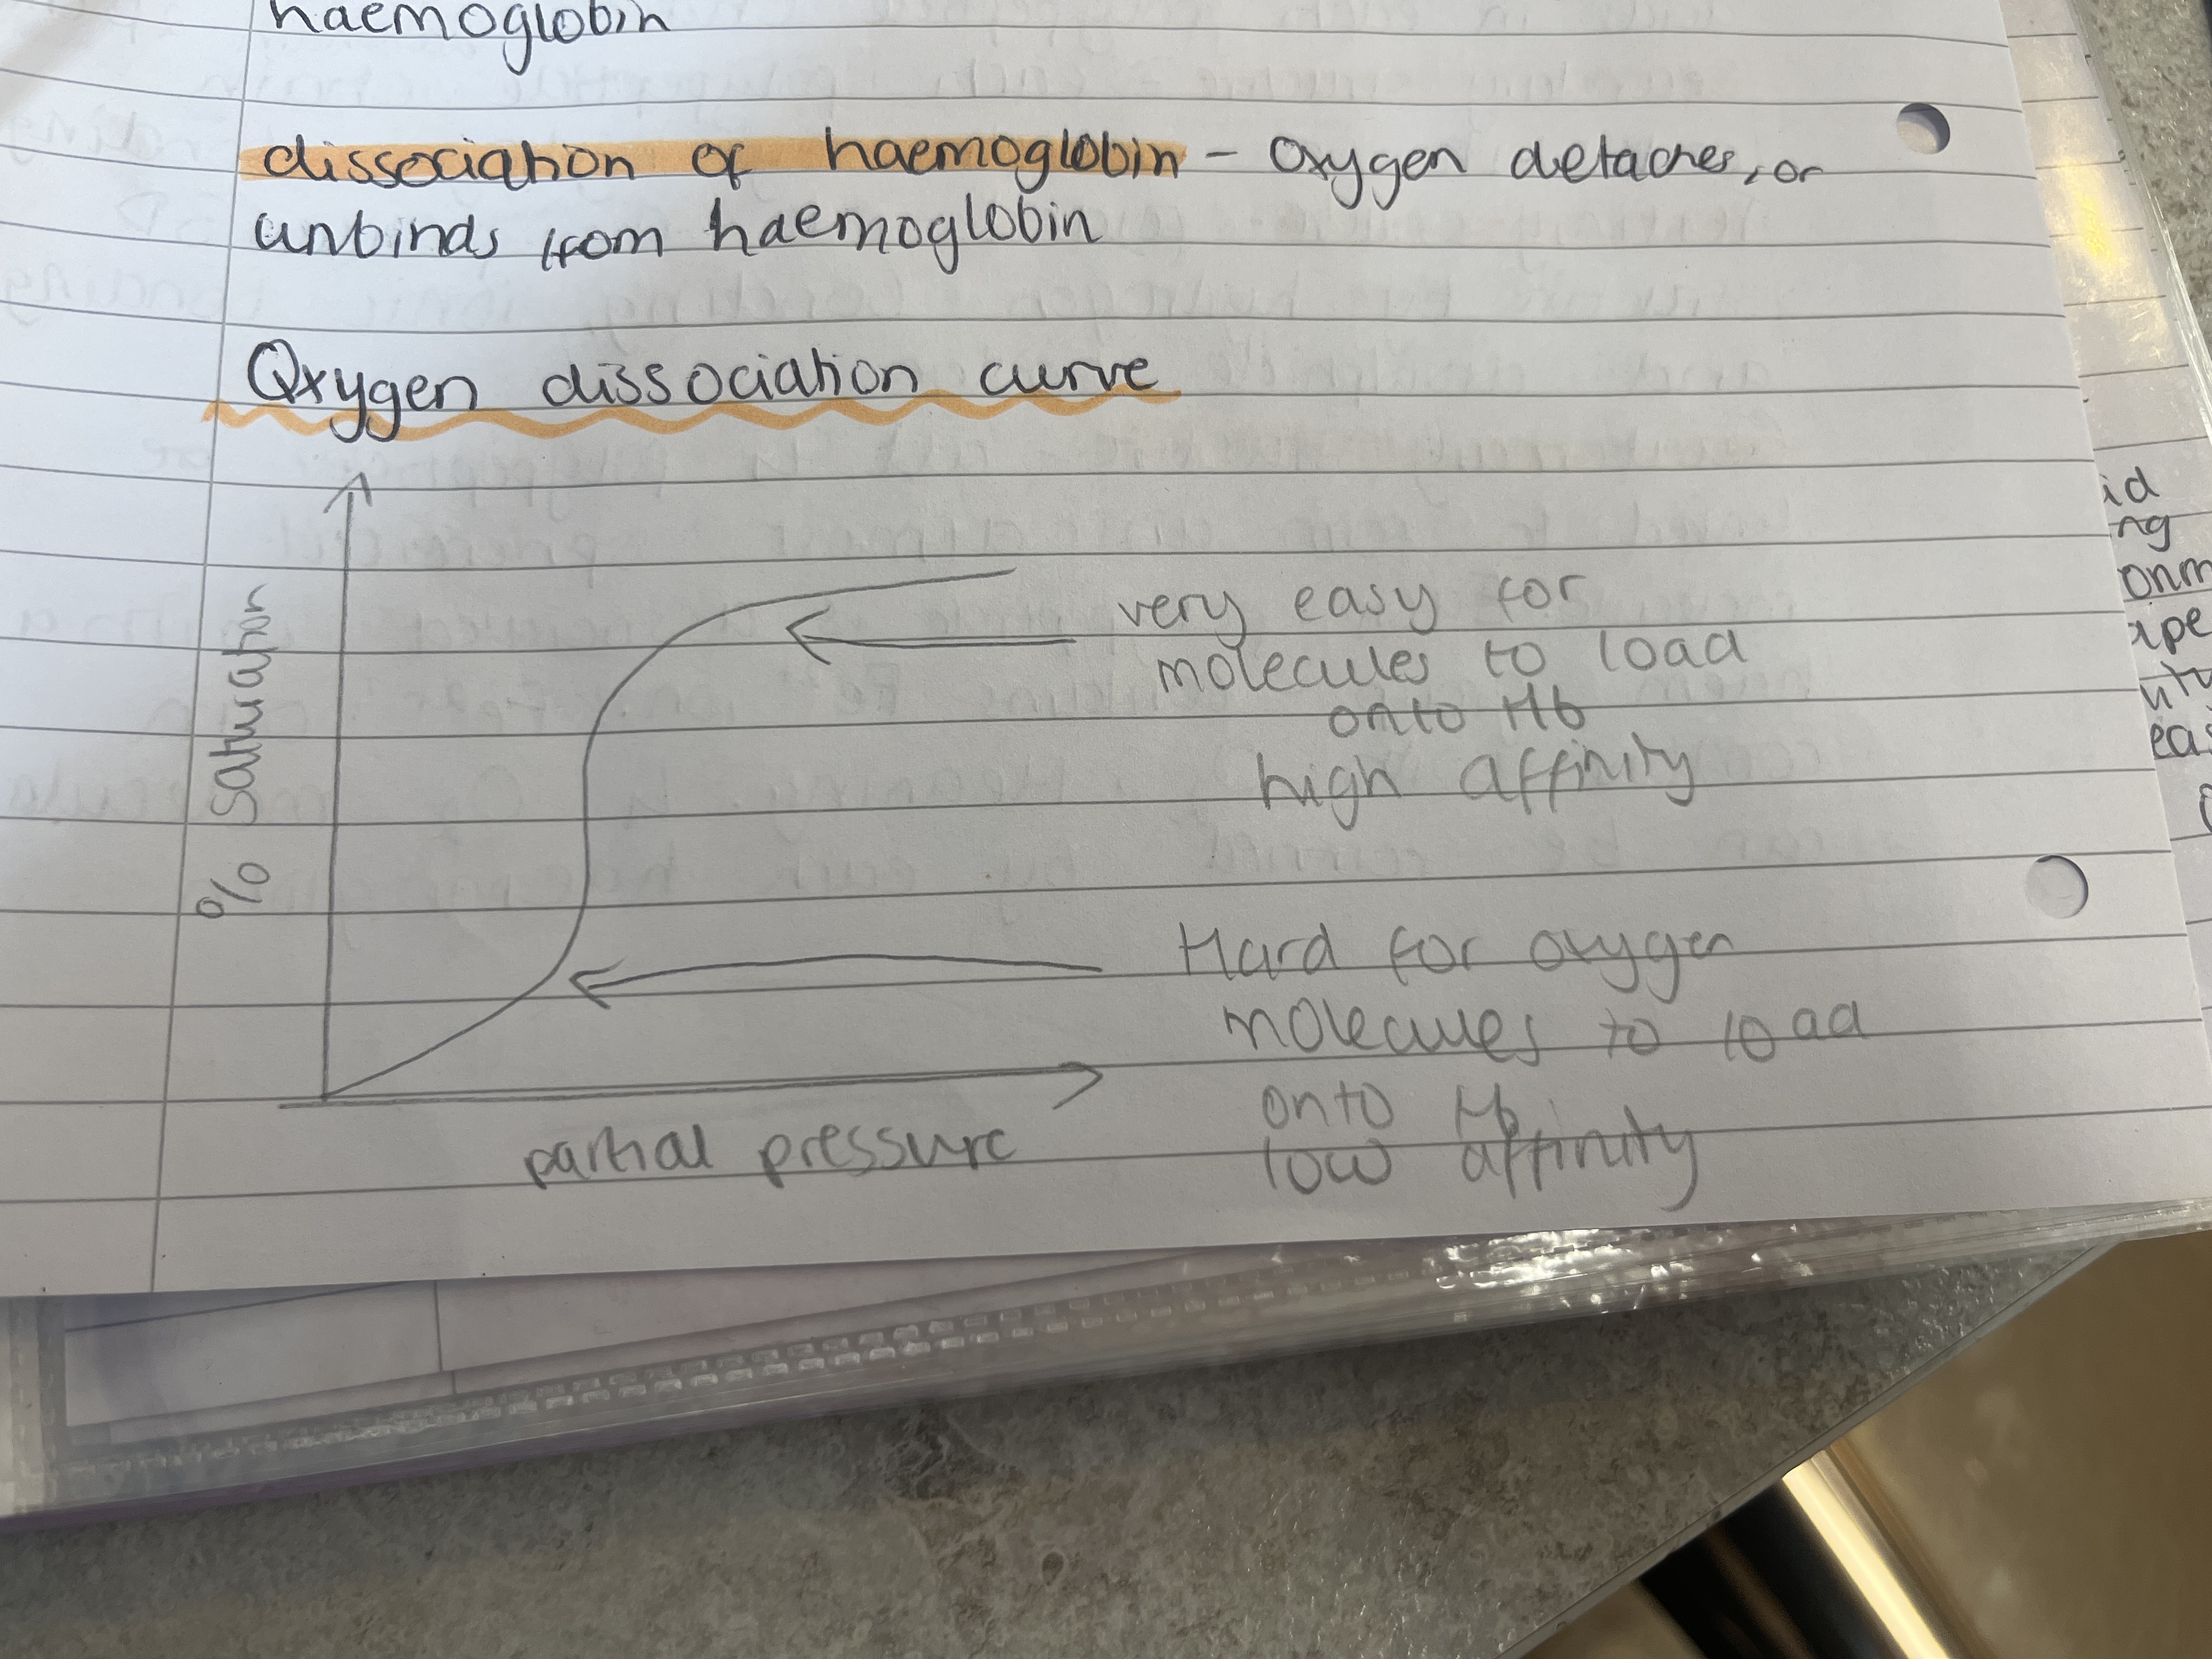 haemoglobin
dissociation of haemoglobin - Oxygen detaches, or
unbinds from haemoglobin
Oxygen dissociation curve
% saturation
very easy for
molecules to load
onto Hb
high affinity
Hard for oxygen
molecules to load
onto Hb
low affinity
partial pressure
id
ng